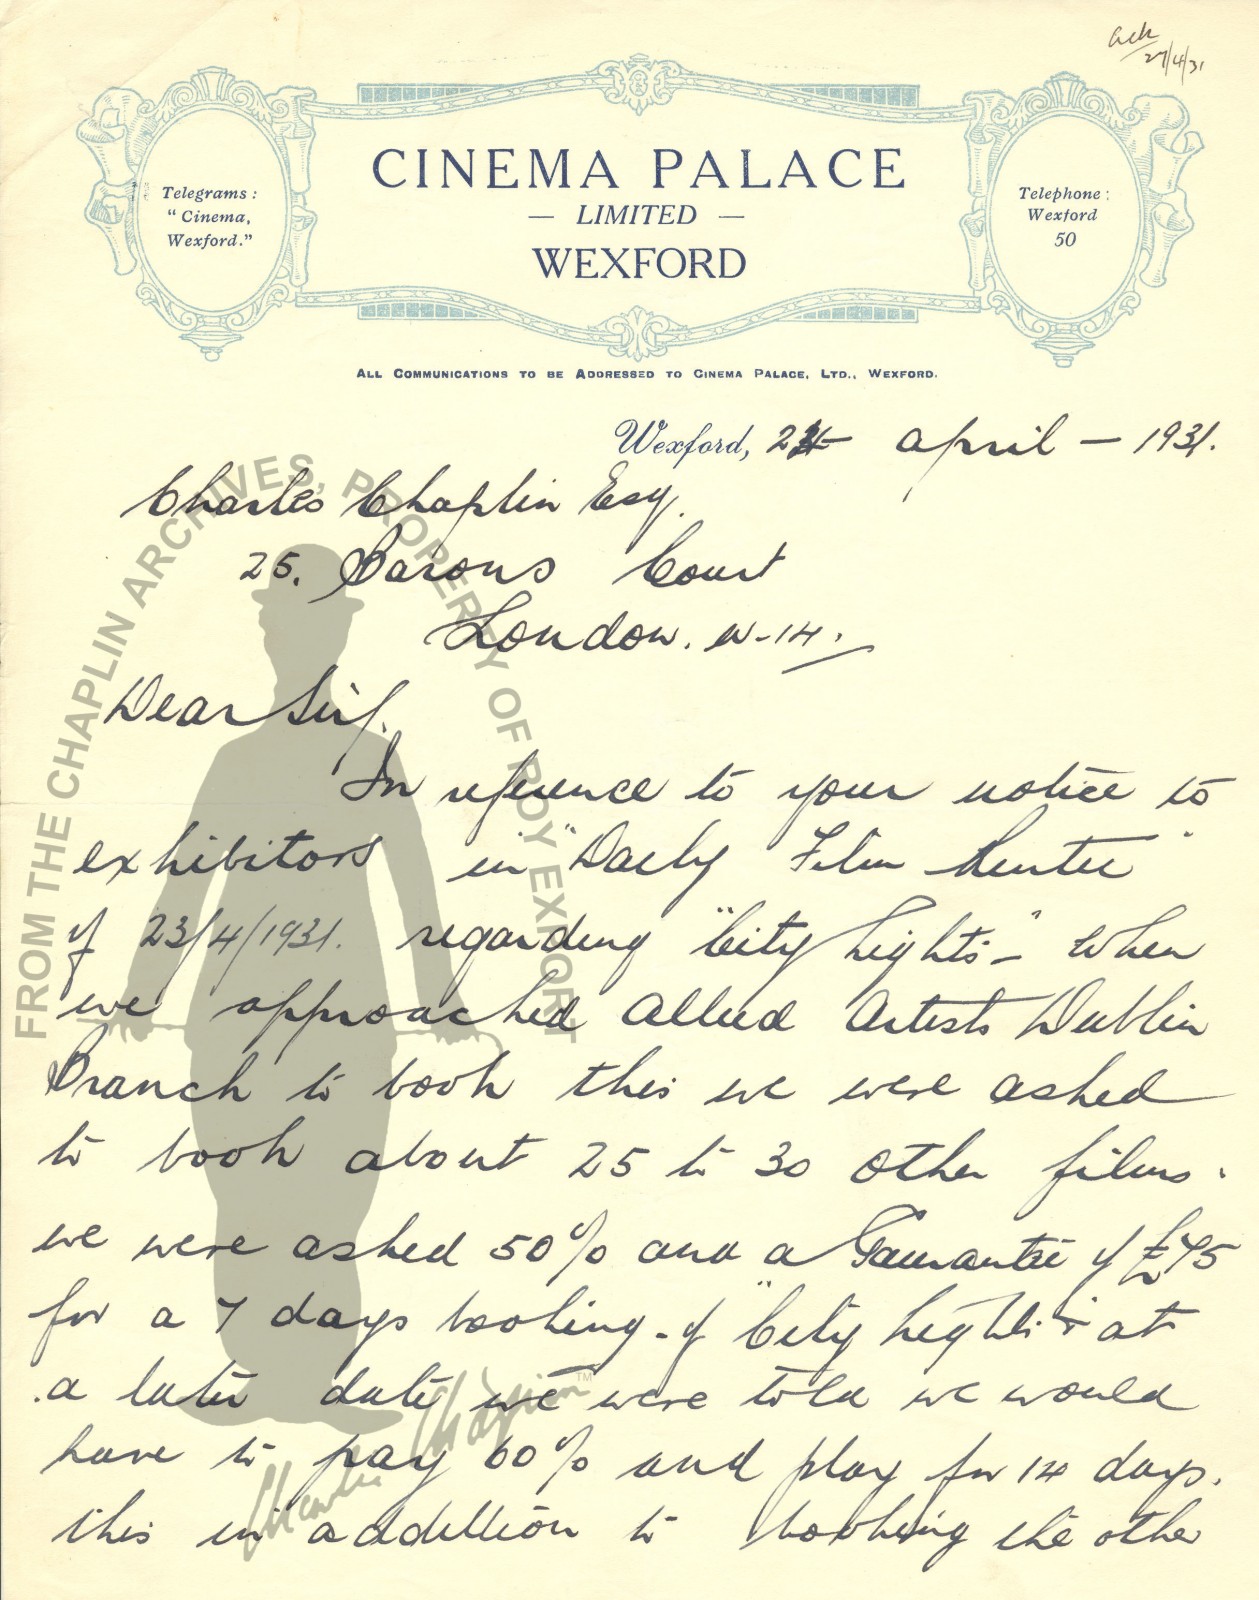 Ack
27/4/31
CINEMA PALACE
— LIMITED —
WEXFORD
Telegrams:
"Cinema,
Wexford."
Telephone:
Wexford
50
ALL COMMUNICATIONS TO BE ADDRESSED TO CINEMA PALACE, LTD., WEXFORD.
Wexford, April — 1931.
Charles Chaplin Esq.
25. Barons Court
London. W-14.
Dear Sir/.
In reference to your notice to
exhibitors in "Daily Film Renter"
of 23/4/1931. regarding "City Lights" - When
we approached Allied Artists Dublin
Branch to book this we were asked
to book about 25 to 30 other films.
we were asked 50% and a Gaurantee of £75
for a 7 days booking - of "City Lights" at
a later date we were told we would
have to pay 60% and play for 14 days.
this in addition to booking the other
FROM THE CHAPLIN ARCHIVES, PROPERTY OF ROY EXPORT
Charlie Chaplin™